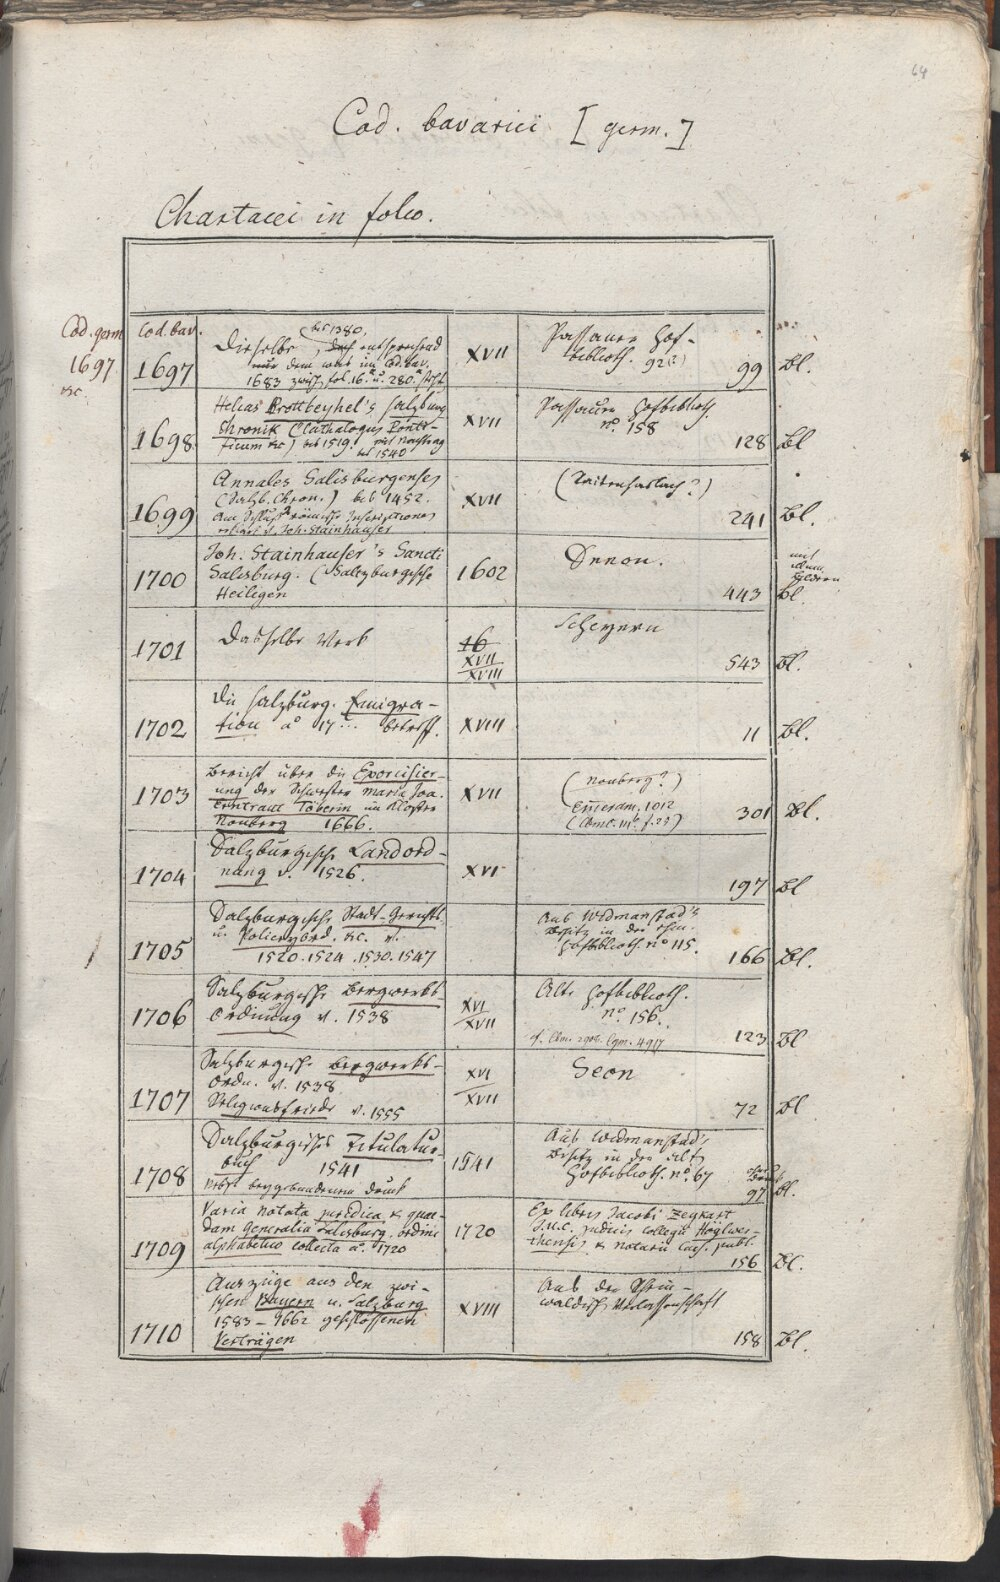 64
Cod. bavarici [germ.]
Chartacei in folio.
Cod. germ
1697
etc.
Cod. bav.
1697
bis 1380,
Dieselbe, doch entsprechend
nur dem was im Cod. bav.
1683 zwisch. fol. 16 u. 280 steht
XVII
Passauer Hof-
biblioth. 92(?)
99 Bl.
1698
Helias Brottbeyhel's Salzburg
Chronik (Cathalogus Ponti-
ficum etc) bis 1519. mit Nachtrag
bis 1540
XVII
Passauer Hofbiblioth
no. 158
128 Bl
1699
Annales Salisburgenses
(Salzb. Chron.) bis 1452.
Am Schluß römische Inscriptiones
v. Joh. Stainhauser
XVII
(Raitenhaslach?)
241 Bl.
1700
Joh. Stainhauser's Sancti
Salisburg. (Saltzburgische
Heiligen
1602
Denon.
mit
illum.
Bildern
443 Bl.
1701
Dasselbe Werk
16
XVII
XVIII
Scheyern
543 Bl.
1702
Die Salzburg. Emigra-
tion ao 17.. betreff.
XVIII
11 Bl.
1703
Bericht über die Exorcisier-
ung der Schwester Maria Joa.
Erntraut Töberin im Kloster
Nonberg 1666.
XVII
(Nonberg?)
Emmeram. 1012
301 Bl.
1704
Salzburgische Landord-
nung v. 1526.
XVI
197 Bl
1705
Salzburgische Stadt-Gerichts
u. Policeyord. etc. v.
1520. 1524. 1530. 1547
Aus Widmanstad's
Besitz in der ehm.
Hofbiblioth no 115.
166 Bl.
1706
Salzburgische Bergwerks-
Ordnung v. 1538
XVI
XVII
Alte Hofbiblioth.
no. 156.
cf. Clm. 2908. Cgm. 4917
123 Bl
1707
Salzburgische Bergwerks-
Ordn. v. 1538
Religionsfriede v. 1555
XVI
XVII
Seon
72 Bl
1708
Salzburgisches Titulatur-
buch 1541
Nebst beygebundenem Druck
1541
Aus Widmanstad's
Besitz in der alt
Hofbiblioth. no. 67
ohne
Druck
97 Bl.
1709
Varia notata juridica & quae-
dam generalia Salisburg. ordine
alphabetico collecta ao. 1720
1720
Ex libris Jacobi Zegkast
J.U.C. judicis collegii Höglwer-
thensis & notarii Caes. publ.
156 Bl.
1710
Auszüge aus den zwi-
schen Bayern u. Salzburg
1583 – 1662 geschlossenen
Verträgen
XVIII
Aus der Schein-
waldisch Verlassenschaft
158 Bl.